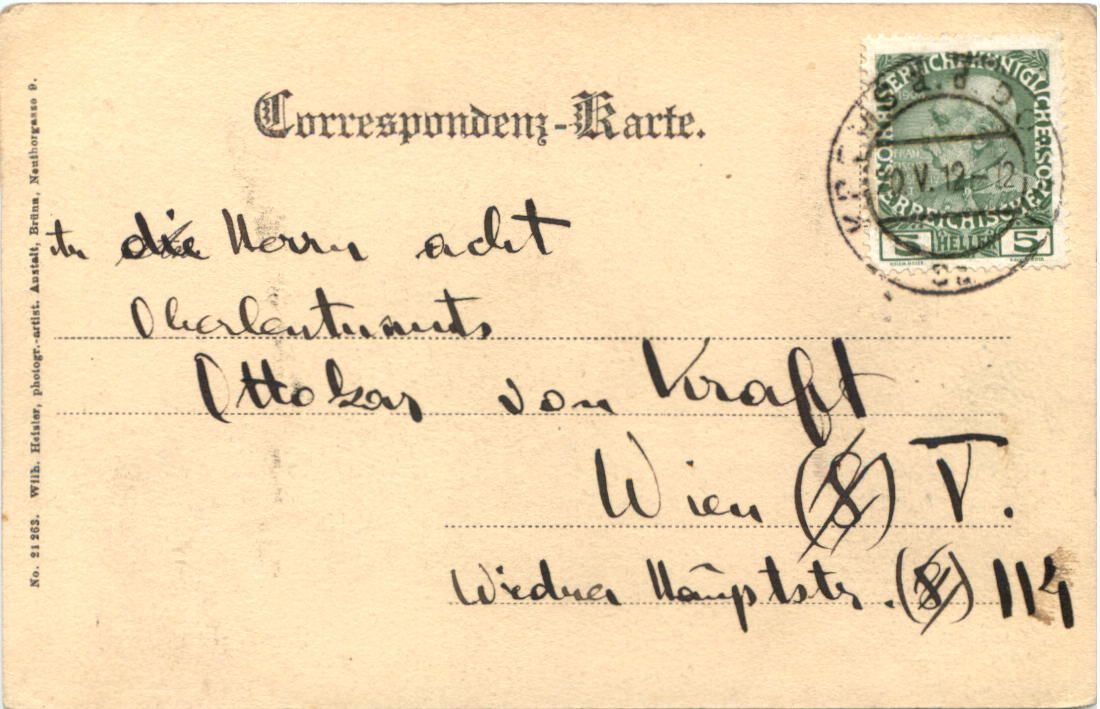 Correspondenz-Karte.
die Herrn acht
Oberleutnants
Ottokar von Kraft
Wien (8) V.
Wiedner Hauptstr. (8) 114
No. 21263. Wilh. Heisler, photogr.-artist. Anstalt, Brünn, Neuthorgasse 9.
KAISERLICH KÖNIGLICHE ÖSTERREICHISCHE POST
5 HELLER 5
KREMS a.d. DO
V. 12-12